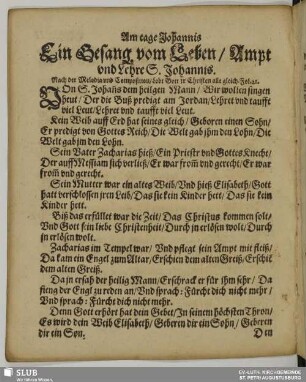 Am tage Johannis
Ein Gesang vom Leben / Ampt
vnd Lehre S. Johannis.
Nach der Melodia vnd Composition / Lobt Gott jr Christen alle gleich / Folget.
VOn S. Johañs dem heilgen Mann / Wir wollen singen
heut / Der die Buß predigt am Jordan / Lehret vnd taufft
viel Leut / Lehret vnd taufft viel Leut.
Kein Weib auff Erd hat seines gleich / Geboren einen Sohn /
Er predigt von Gottes Reich / Die Welt gab jhm den Lohn / Die
Welt gab jm den Lohn.
Sein Vater Zacharias hieß / Ein Priestr vnd Gottes Knecht /
Der auff Messiam sich verließ / Er war from vnd gerecht / Er war
from vnd gerecht.
Sein Mutter war ein altes Weib / Vnd hieß Elisabeth / Gott
hatt verschlossen jren Leib / Das sie kein Kinder hett / Das sie kein
Kinder hett.
Biß das erfüllet war die Zeit / Das Christus kommen solt /
Vnd Gott sein liebe Christenheit / Durch jn erlösen wolt / Durch
jn erlösen wolt.
Zacharias im Tempel war / Vnd pflegt sein Ampt mit fleiß /
Da kam ein Engel zum Altar / Erschien dem alten Greiß / Erschiē
dem alten Greiß.
Da jn ersah der heilig Mann / Erschrack er für jhm sehr / Da
fieng der Engl zu reden an / Vnd sprach: Fürcht dich nicht mehr /
Vnd sprach: Fürcht dich nicht mehr.
Denn Gott erhört hat dein Gebet / In seinem höchsten Thron /
Es wird dein Weib Elisabeth / Geberen dir ein Sohn / Geberen
dir ein Son.
Den
SLUB
Wir führen Wissen.
EV.-LUTH. KIRCHGEMEINDE
ST. PETRI AUGUSTUSBURG